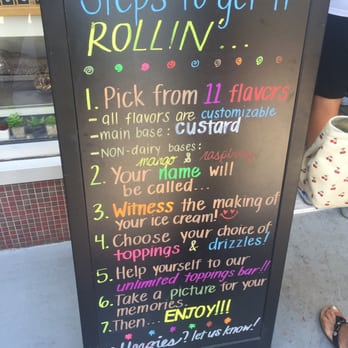 Steps to get it
ROLLIN'...
1. Pick from 11 flavors
- all flavors are customizable
- main base: custard
- NON-dairy bases:
mango & raspberry
2. Your name will
be called...
3. Witness the making of
your ice cream!
4. Choose your choice of
toppings & drizzles!
5. Help yourself to our
unlimited toppings bar!!
6. Take a picture for your
memories.
7. Then... ENJOY!!!
Allergies? let us know!